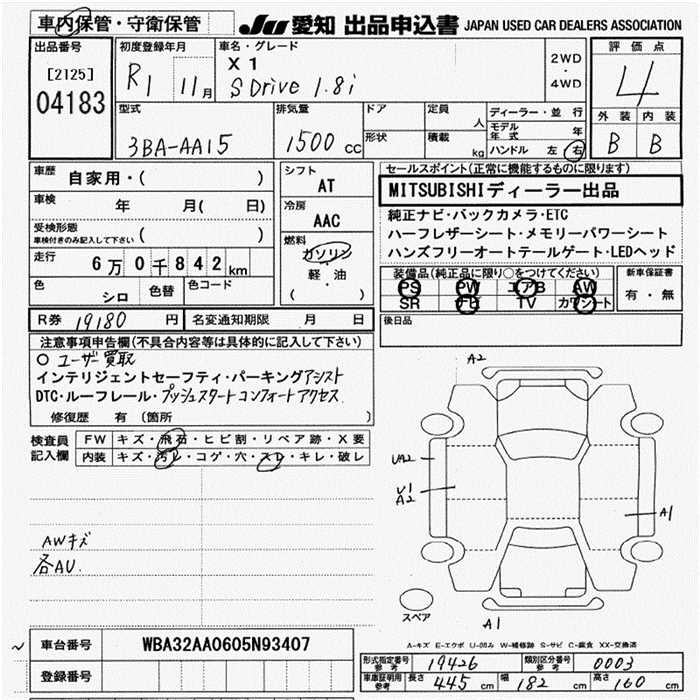 車内保管・守衛保管 JU 愛知 出品申込書 JAPAN USED CAR DEALERS ASSOCIATION
出品番号
[2125]
04183
初度登録年月
R1 11月
車名・グレード
X1
SDrive 1.8i
2WD
・
4WD
評価点
4
外装 内装
B B
型式
3BA-AA15
排気量
1500 CC
ドア
形状
定員
人
積載
kg
ディーラー・並 行
モデル
年式 年
ハンドル 左 右
車歴 自家用・( )
車検 年 月( 日)
受検形態
車検付きのみ記入して下さい ( )
走行 6万0千842km
色 シロ 色替 色コード
R券 19180 円 名変通知期限 月 日
シフト
AT
冷房
AAC
燃料
ガソリン
軽・油
( ・ )
セールスポイント(正常に機能するものに限ります)
MITSUBISHIディーラー出品
純正ナビ・バックカメラ・ETC
ハーフレザーシート・メモリーパワーシート
ハンズフリーオートテールゲート・LEDヘッド
装備品(純正品に限り○をつけてください)
PS PW エアB AW
SR ナビ TV カワシート
新車保証書
有・無
後日品
注意事項申告欄(不具合内容等は具体的に記入して下さい)
○ ユーザー買取
インテリジェントセーフティ・パーキングアシスト
DTC・ルーフレール・プッシュスタート コンフォートアクセス.
修復歴 有 (箇所 )
検査員
記入欄
FW キズ・飛石・ヒビ割・リペア跡・X要
内装 キズ・汚レ・コゲ・穴・スレ・キレ・破レ
AWキズ
各AU.
A2
UA2
U1
A2
A1
スペア
A1
A-キズ E-エクボ U-凹み W-補修跡 S-サビ C-腐食 XX-交換済
車台番号 WBA32AA0605N93407
登録番号
形式指定番号
参考 19426
類別区分番号
参考 0003
車庫証明用
参考
長さ 445 cm 幅 182 cm 高さ 160 cm